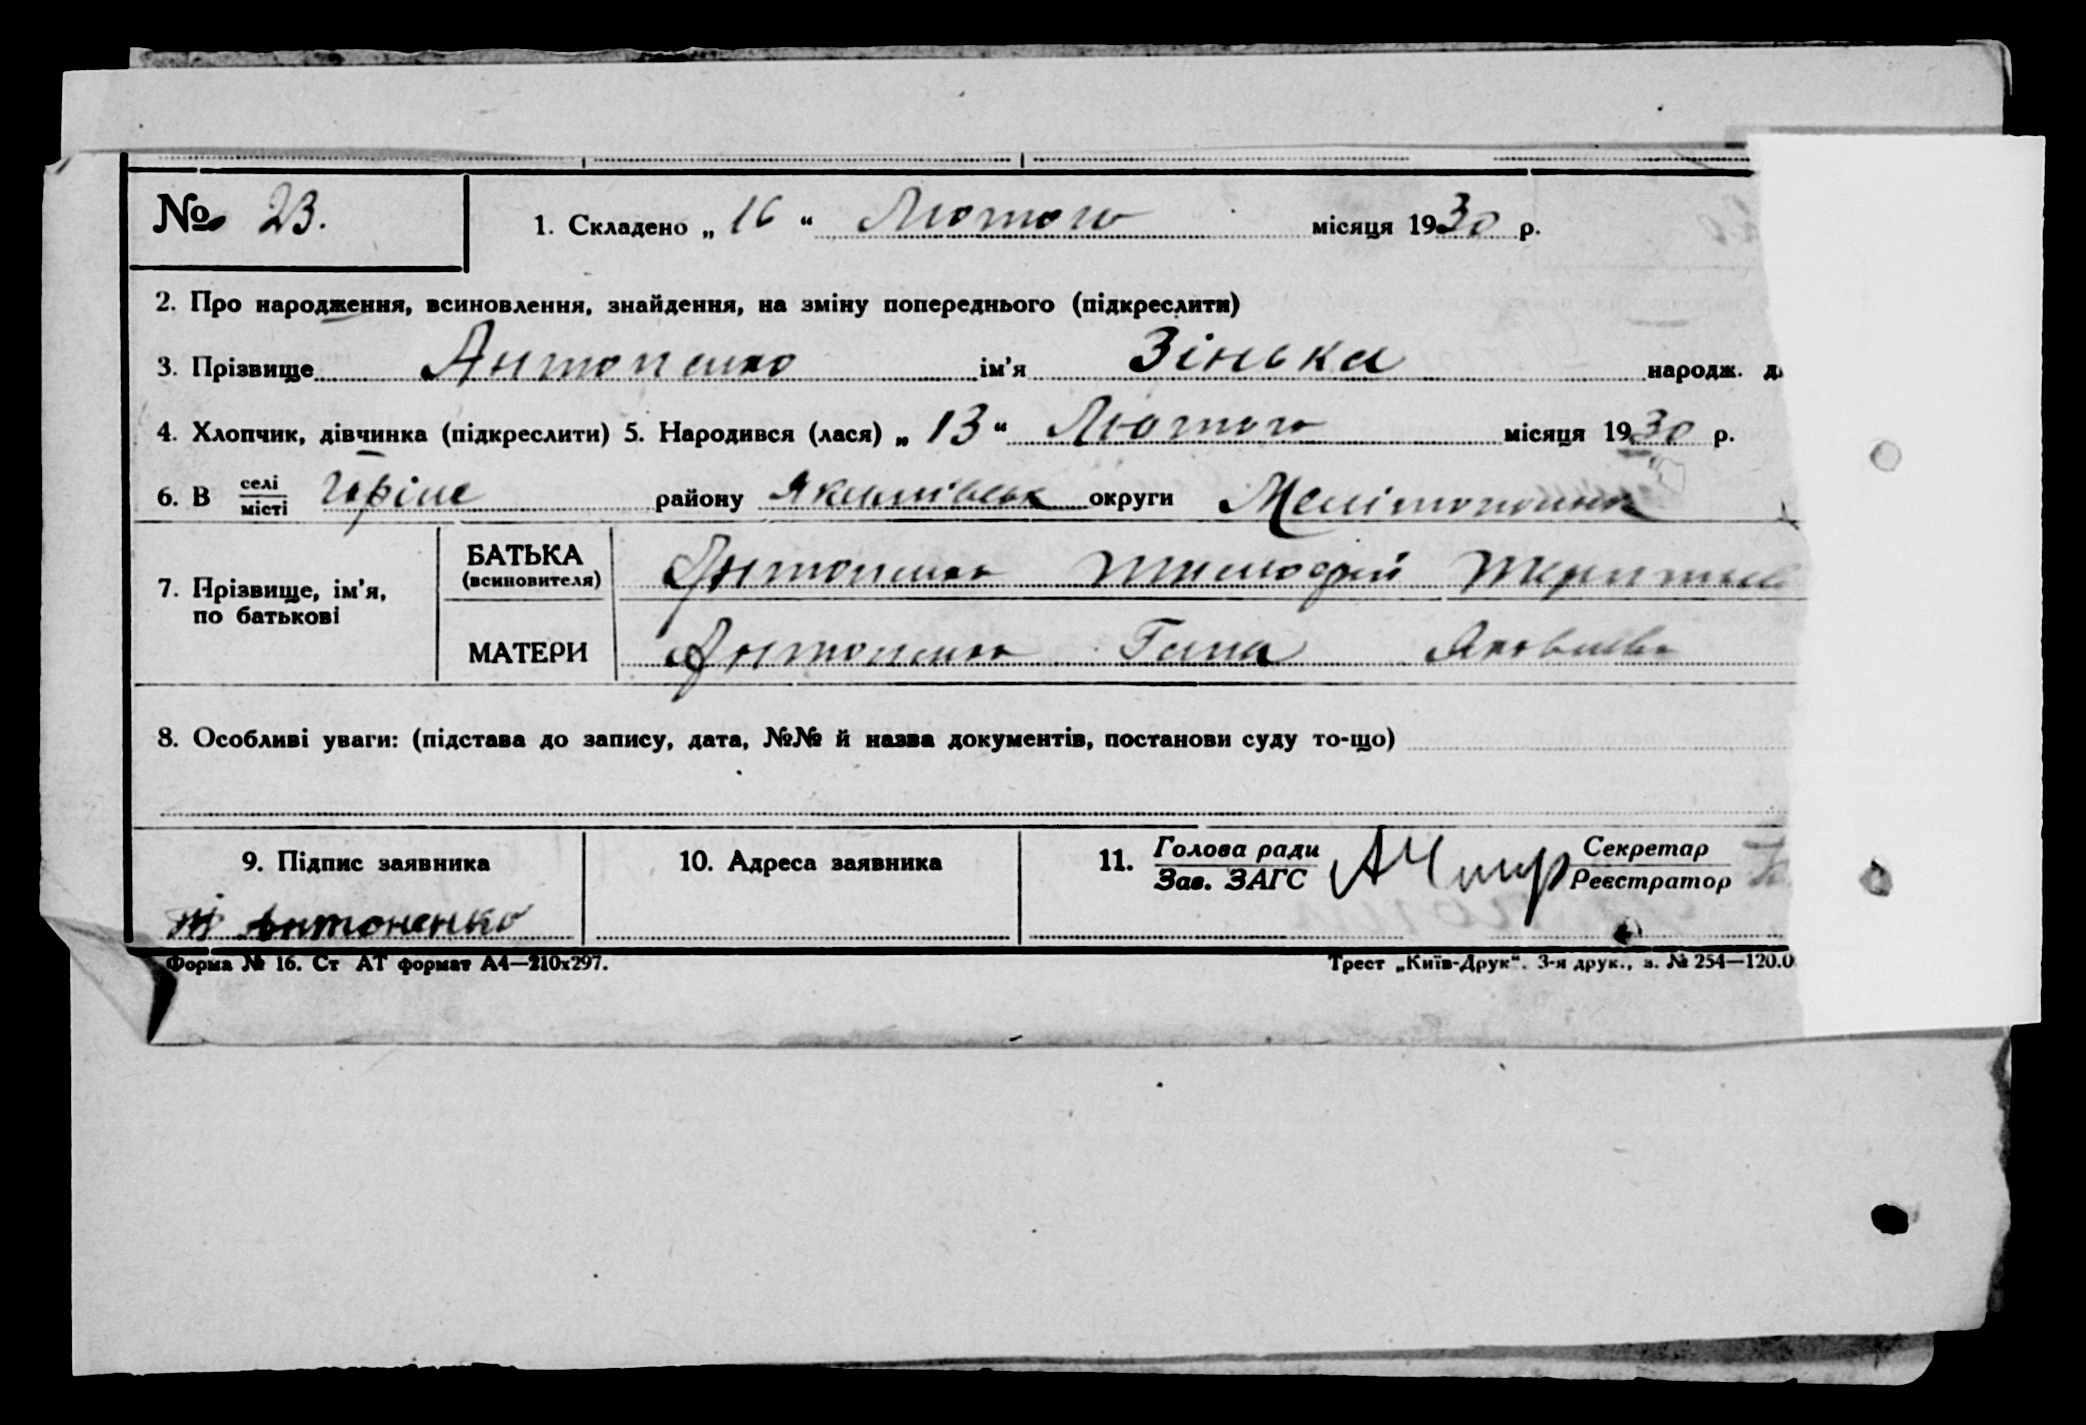 № 23. 1. Складено „ 16 “ Лютого місяця 1930 р.
2. Про народження, всиновлення, знайдення, на зміну попереднього (підкреслити)
3. Прізвище Антоненко ім’я Зінька народж.
4. Хлопчик, дівчинка (підкреслити) 5. Народився (лася) „ 13 “ Лютого місяця 1930 р.
6. В селі місті району округи
7. Прізвище, ім’я, по батькові
БАТЬКА (всиновителя) Антоненко Тимофій
МАТЕРИ Антоненко Ганна Яковлева
8. Особливі уваги: (підстава до запису, дата, №№ й назва документів, постанови суду то-що)
9. Підпис заявника 10. Адреса заявника 11. Голова ради Зав. ЗАГС Секретар Реєстратор
Антоненко
Форма № 16. Ст АТ формат А4—210х297. Трест „Київ-Друк“. 3-я друк., з. № 254—120.0